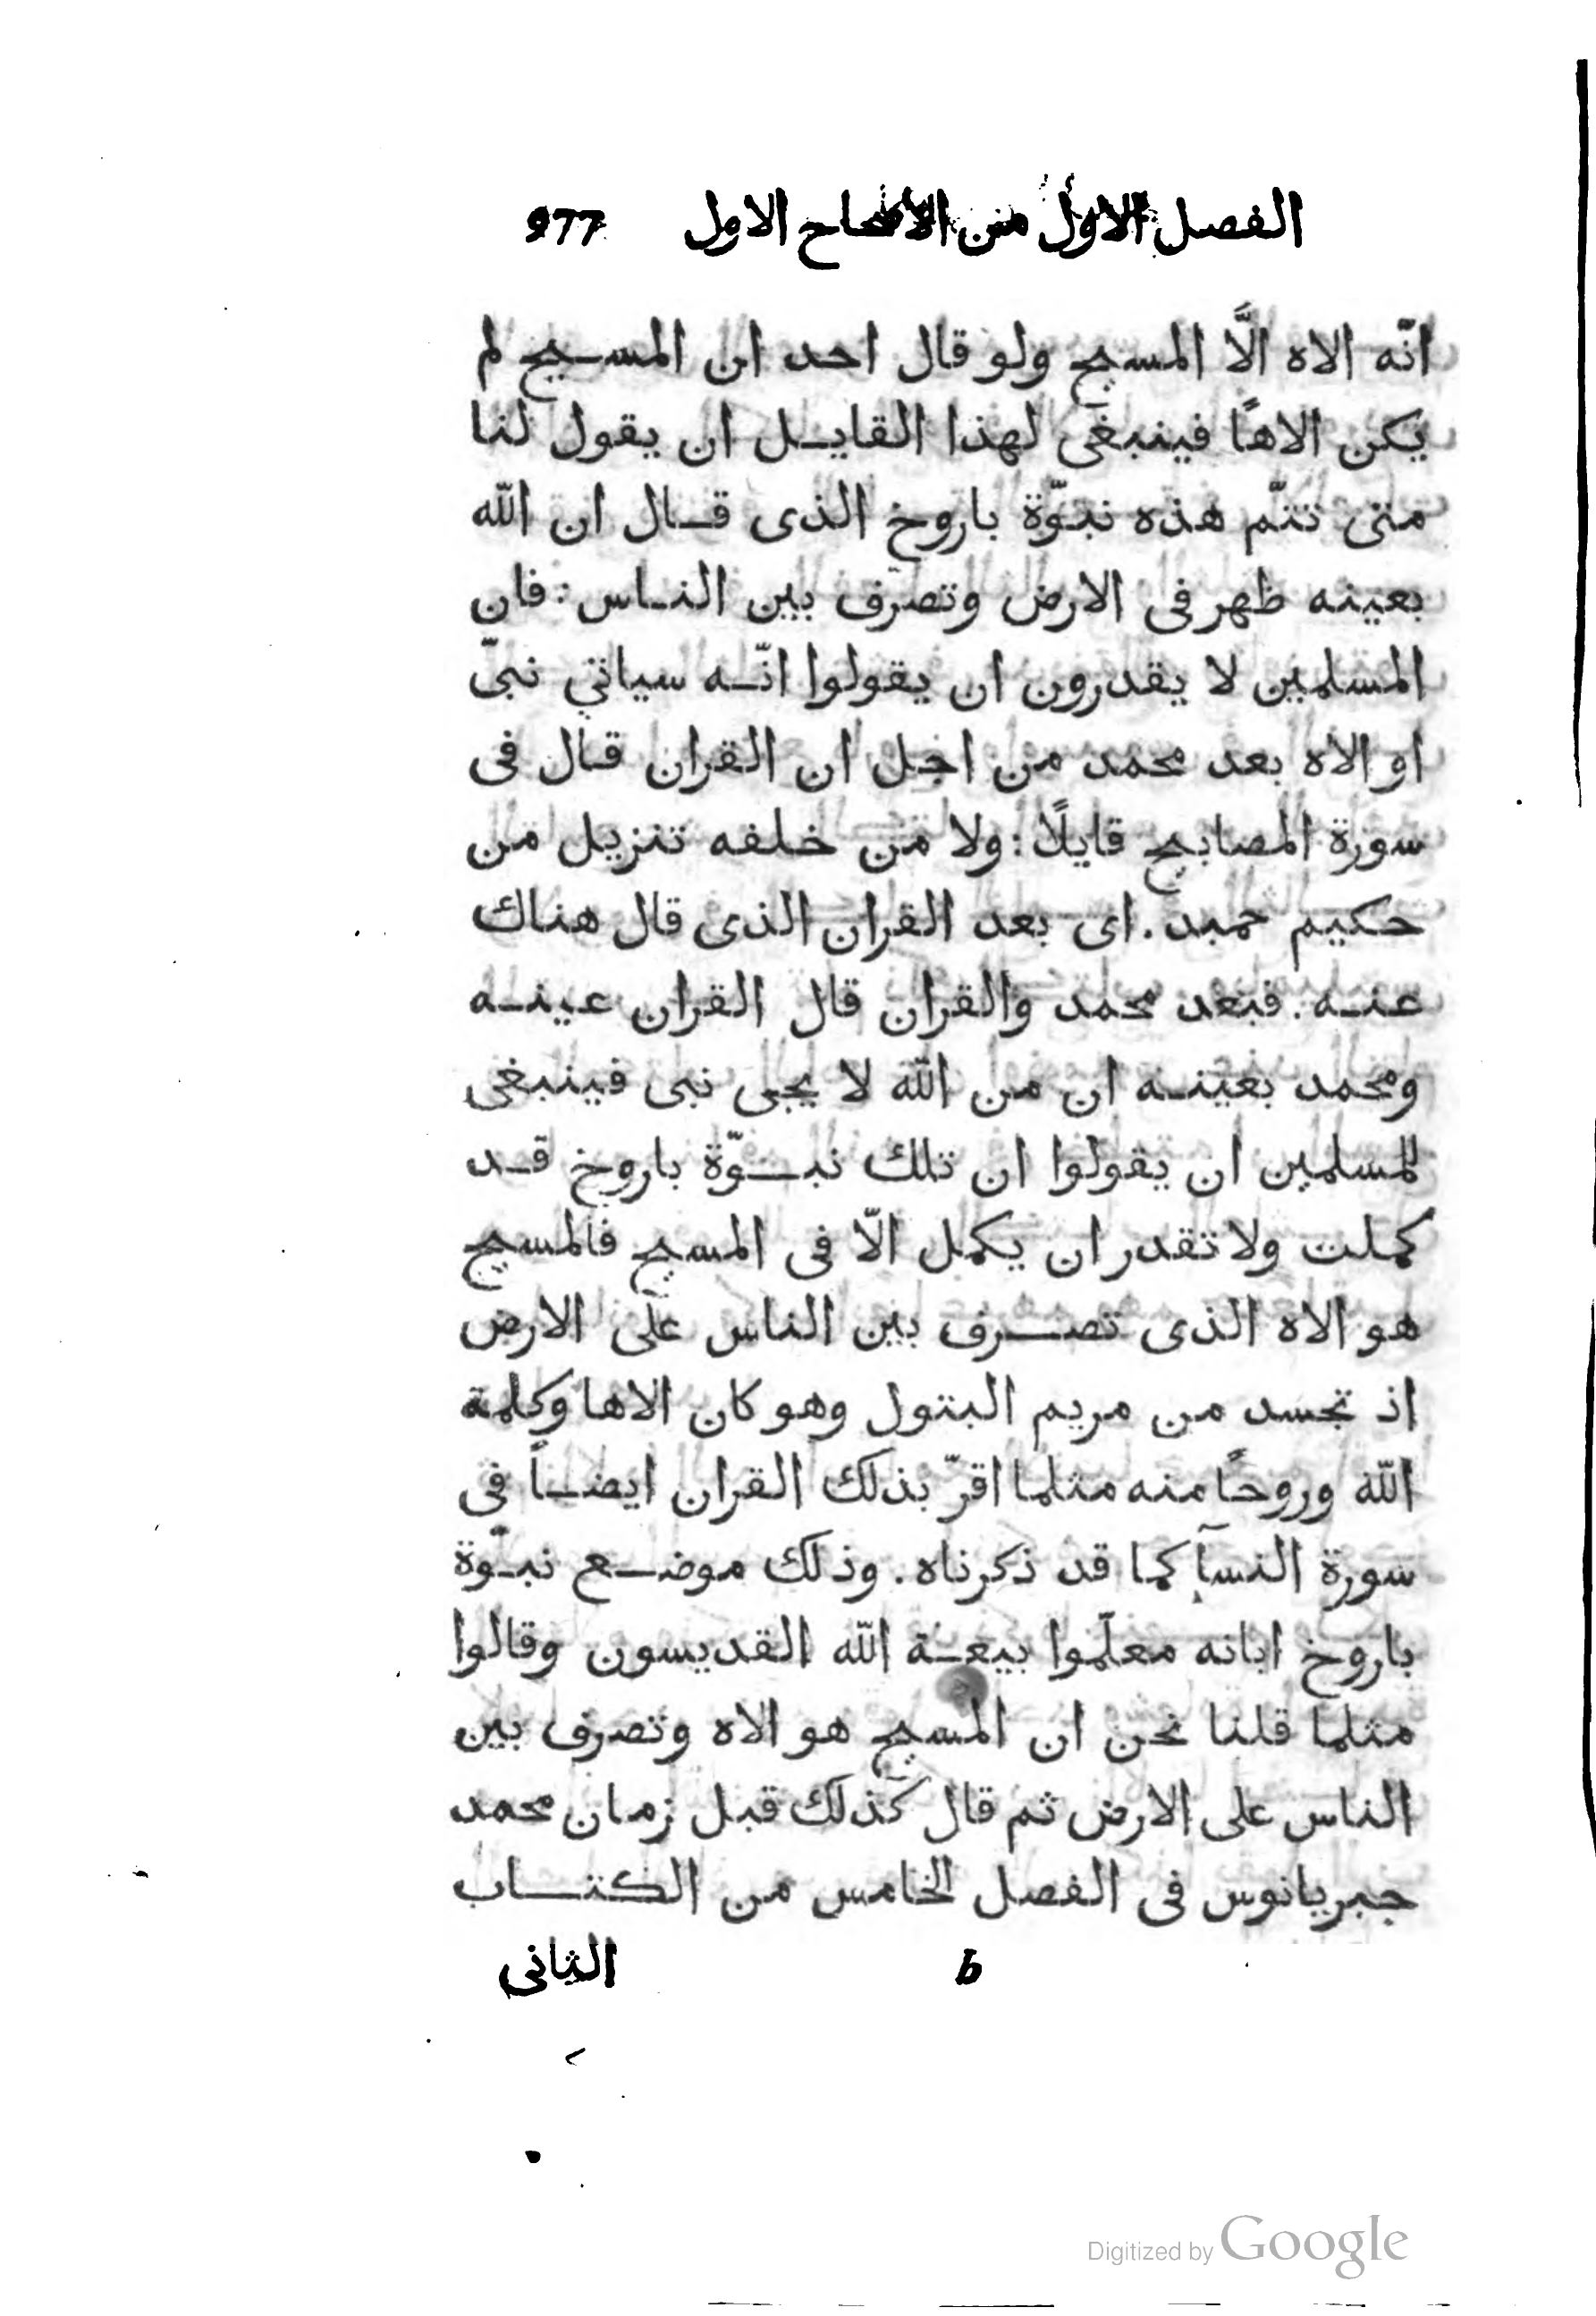 الفصل الاول من الاصحاح الاول 977
انّه الاه الَّا المسيح ولو قال احد ان المسيح لم
يكن الاهًا فينبغى لهذا القايل ان يقول لنا
متى تتمّ هذه نبوّة باروخ الذى قال ان الله
بعينه ظهر فى الارض وتصرّف بين الناس: فان
المسلمين لا يقدرون ان يقولوا انّه سياتي نبىّ
او الاه بعد محمد من اجل ان القران قال فى
سورة المصابيح قايلًا: ولا من خلفه تنزيل من
حكيم حميد. اى بعد القران الذى قال هناك
عنه. فبعد محمد والقران قال القران عينه
ومحمد بعينه ان من الله لا يجى نبى فينبغى
للمسلمين ان يقولوا ان تلك نبوّة باروخ قد
كملت ولا تقدر ان يكمل الّا فى المسيح فالمسيح
هو الاه الذى تصرف بين الناس على الارض
اذ تجسد من مريم البتول وهو كان الاها وكلمة
الله وروحًا منه مثلما اقرّ بذلك القران ايضاً فى
سورة النسآ كما قد ذكرناه. وذلك موضع نبوّة
باروخ ابانه معلّموا بيعة الله القديسون وقالوا
مثلما قلنا نحن ان المسيح هو الاه وتصرف بين
الناس على الارض ثم قال كذلك قبل زمان محمد
جبريانوس فى الفصل الخامس من الكتاب
b الثانى
Digitized by Google